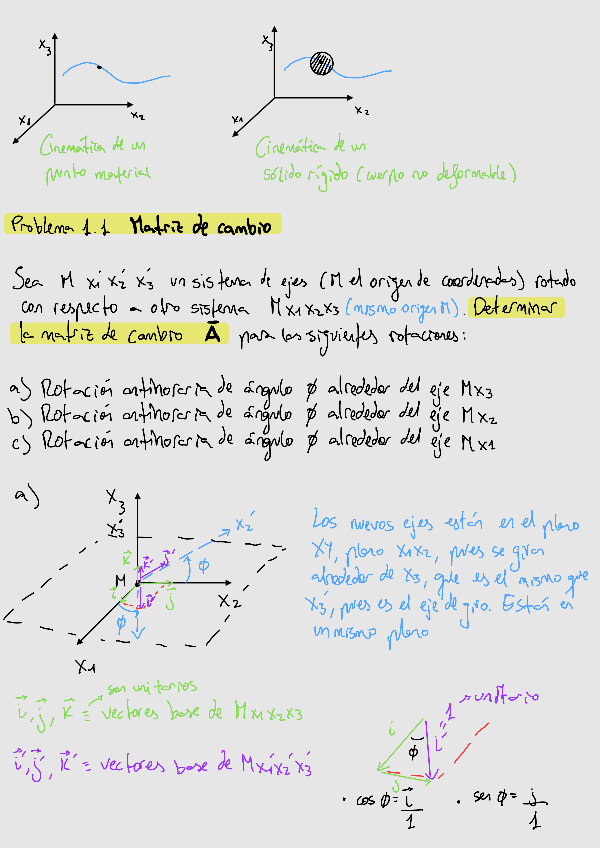 X3
X1
X2
Cinemática de un
punto material
X3
X1
X2
Cinemática de un
sólido rígido (cuerpo no deformable)
Problema 1.1 Matriz de cambio
Sea M x1' x2' x3' un sistema de ejes (M el origen de coordenadas) rotado
con respecto a otro sistema M x1 x2 x3 (mismo origen M). Determinar
la matriz de cambio Ā para las siguientes rotaciones:
a) Rotación antihoraria de ángulo ϕ alrededor del eje Mx3
b) Rotación antihoraria de ángulo ϕ alrededor del eje Mx2
c) Rotación antihoraria de ángulo ϕ alrededor del eje Mx1
a)
X3
X3'
x2'
k⃗ k⃗' j⃗'
ϕ
M
i⃗ i⃗' j⃗
X2
ϕ
X1
Los nuevos ejes están en el plano
XY, plano x1x2, pues se giran
alrededor de x3, que es el mismo que
x3', pues es el eje de giro. Están en
un mismo plano
son unitarios
i⃗, j⃗, k⃗ ≡ vectores base de Mx1x2x3
i⃗', j⃗', k⃗' ≡ vectores base de Mx1'x2'x3'
unitario
1
i
i⃗'
ϕ
j
· cos ϕ = i⃗/1 · sen ϕ = j/1